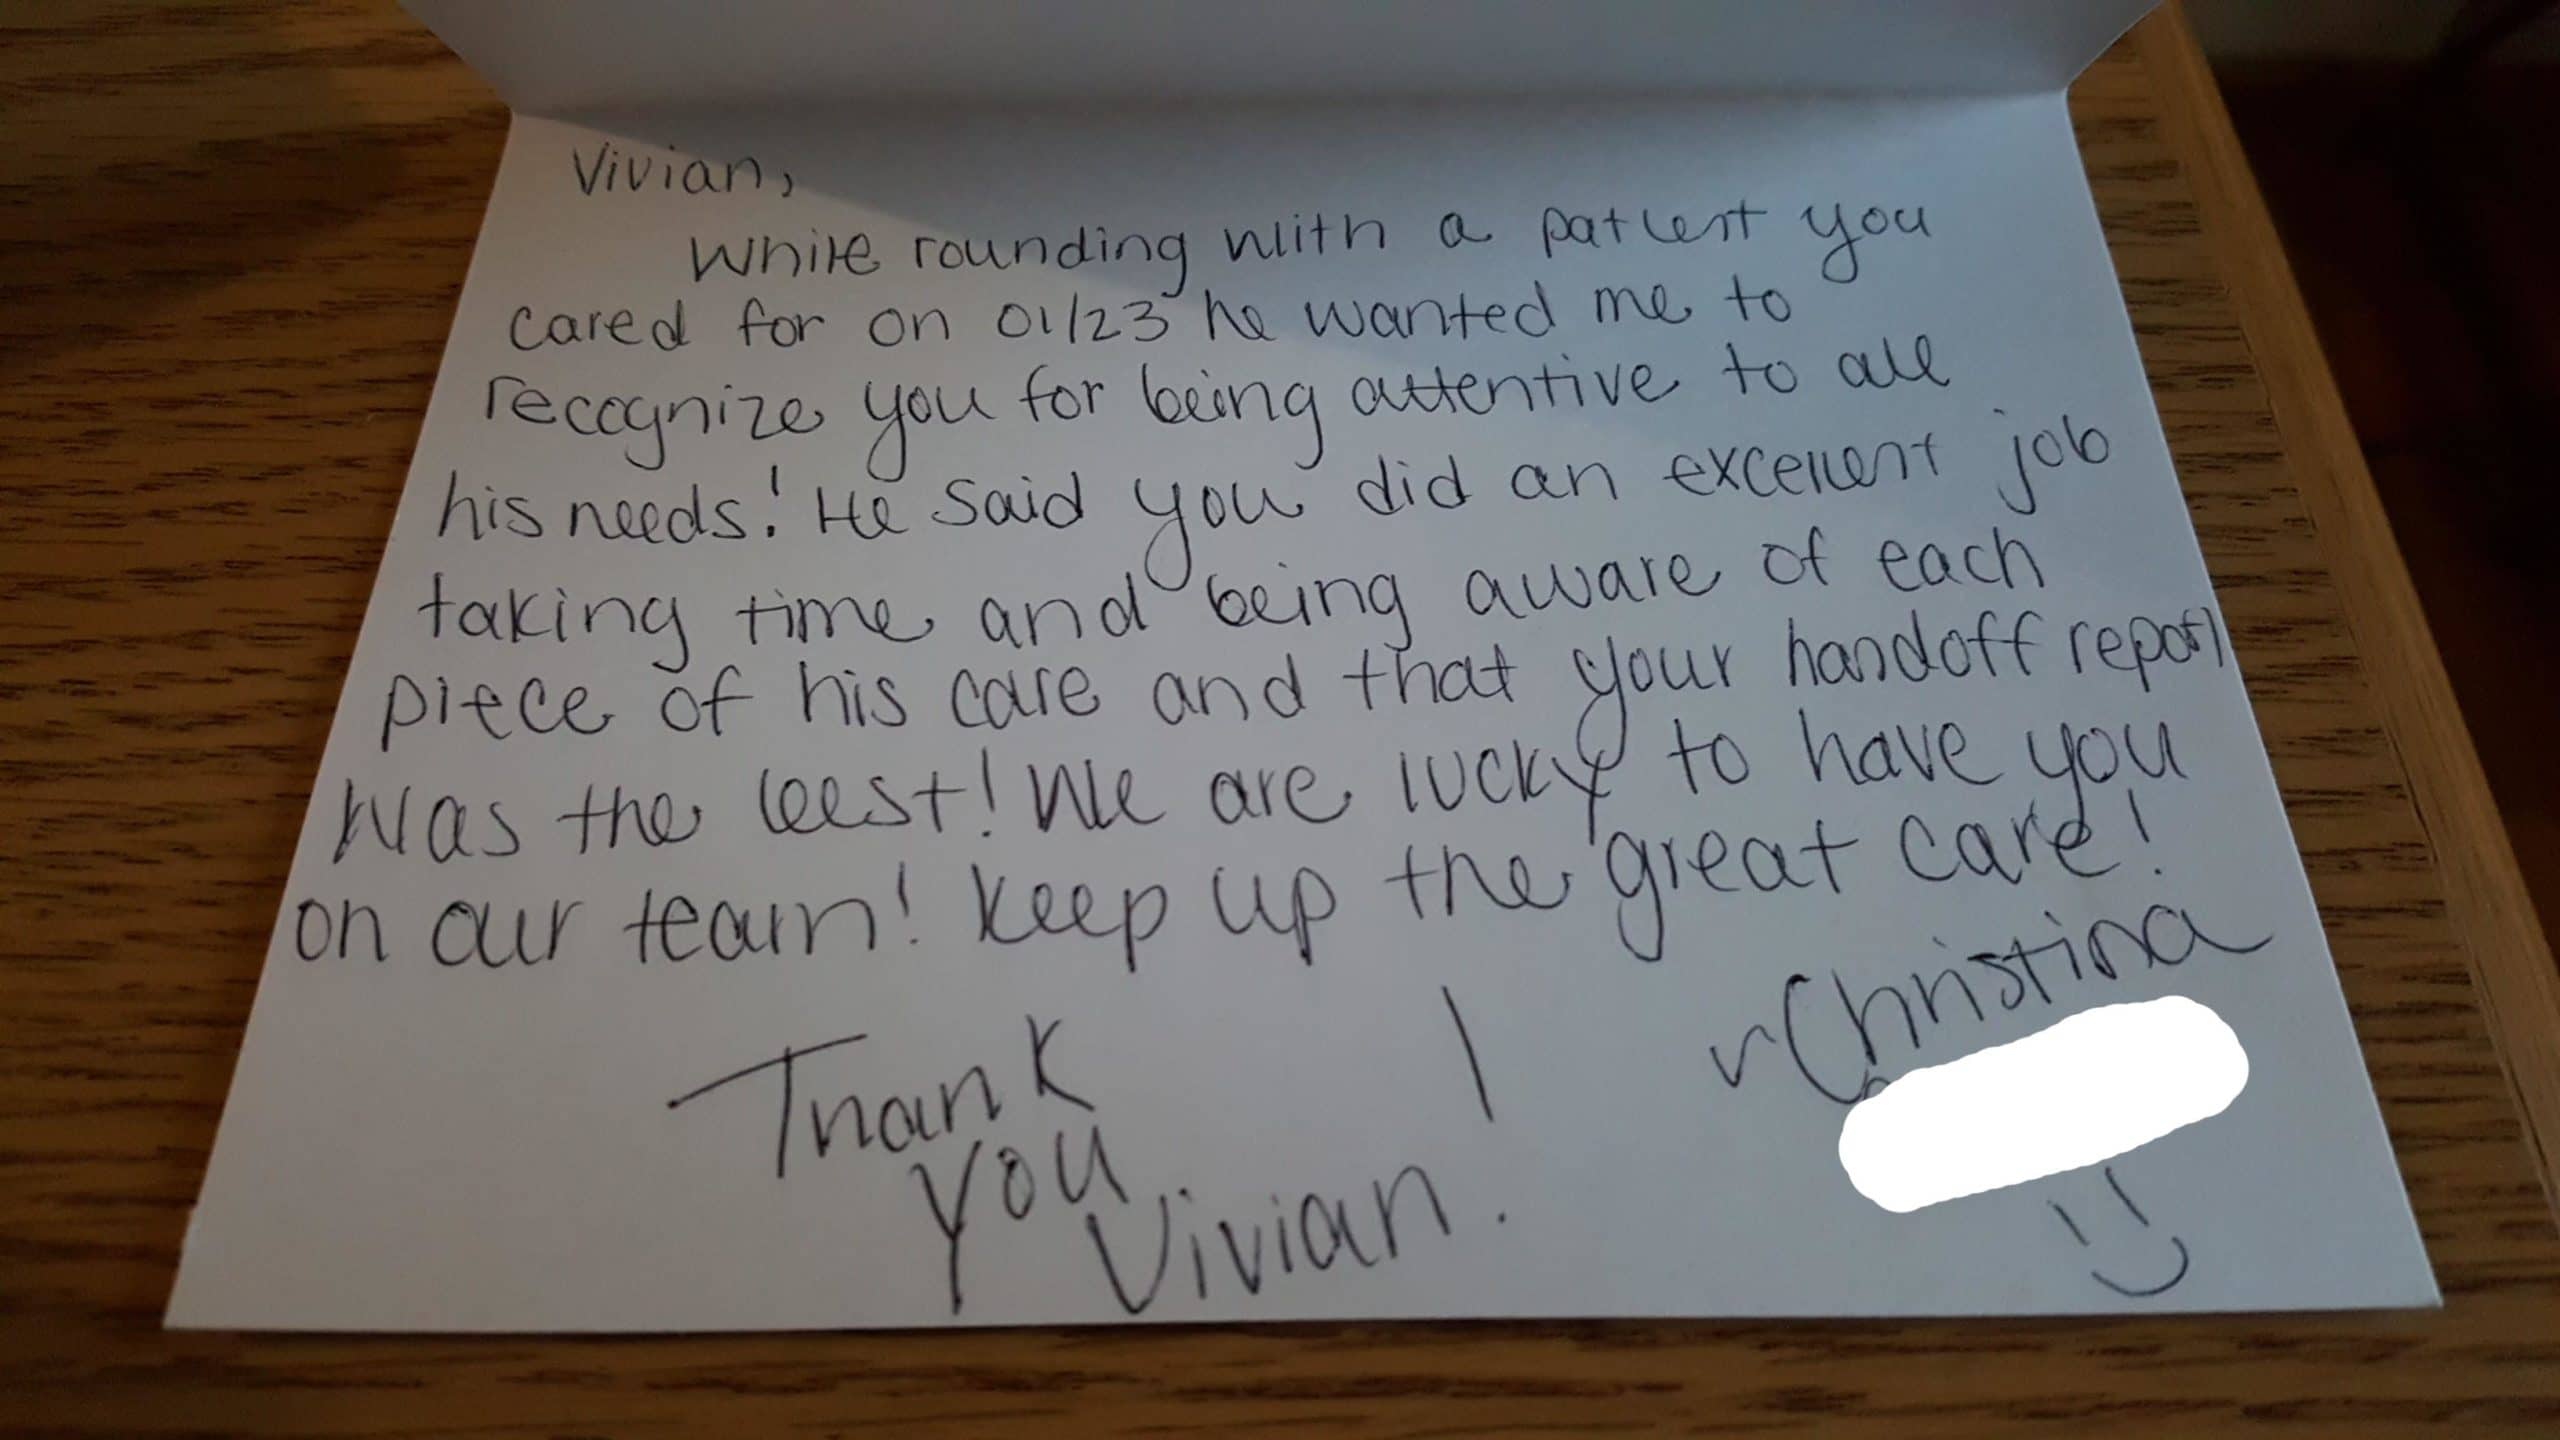 Vivian,
While rounding with a patient you
cared for on 01/23 he wanted me to
recognize you for being attentive to all
his needs! He said you did an excellent job
taking time and being aware of each
piece of his care and that your handoff report
was the best! We are lucky to have you
on our team! Keep up the great care!
~Christina
Thank
you
Vivian!